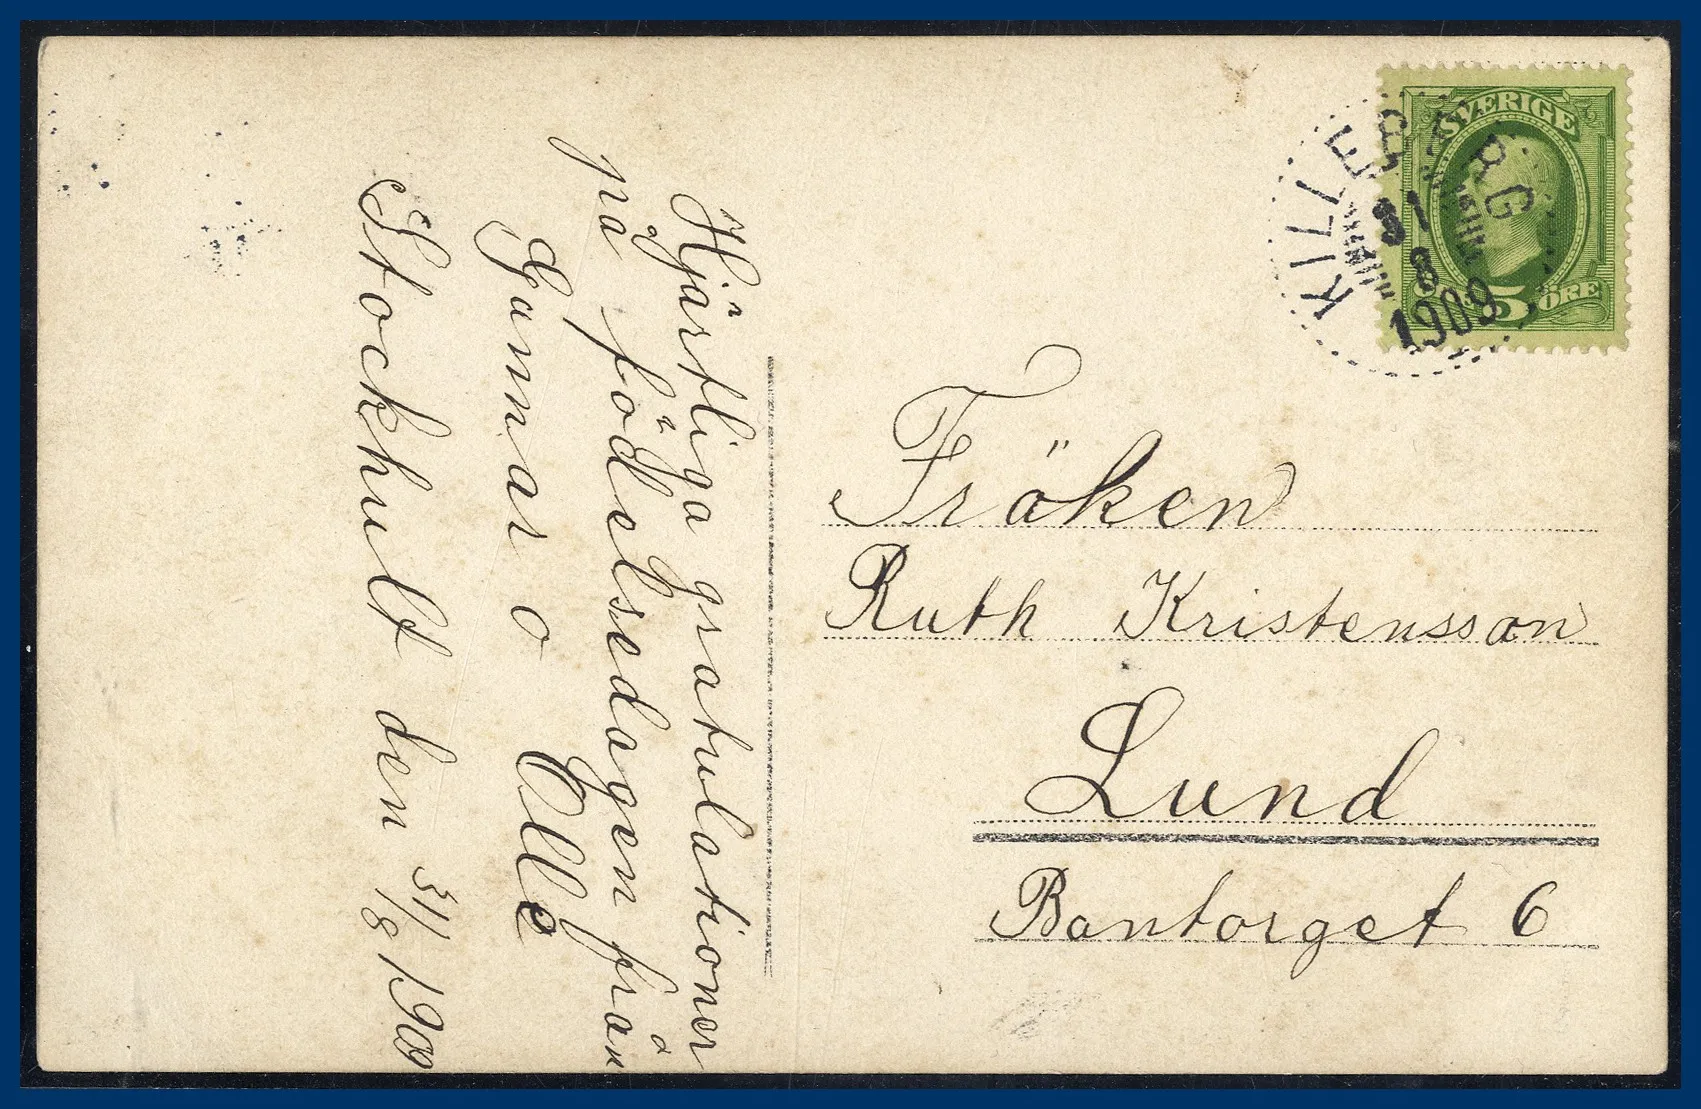 Hjärtliga gratulationer
på födelsedagen från
Gunnar o Elle
Stockhult den 31/8 1909
SVERIGE
5 ÖRE
KILLEBERG
31
8
1909
Fröken
Ruth Kristensson
Lund
Bantorget 6